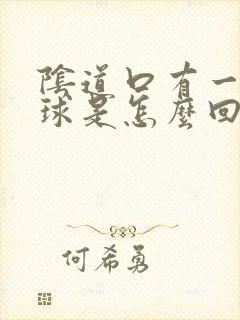 陰道口有一
球是怎麼回
何希勇